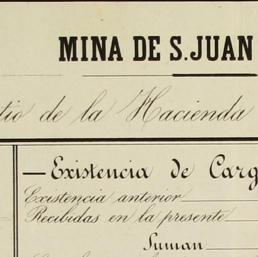 MINA DE S. JUAN
tio de la Hacienda
—Existencia de Carg
Existencia anterior
Recibidas en la presente
Suman